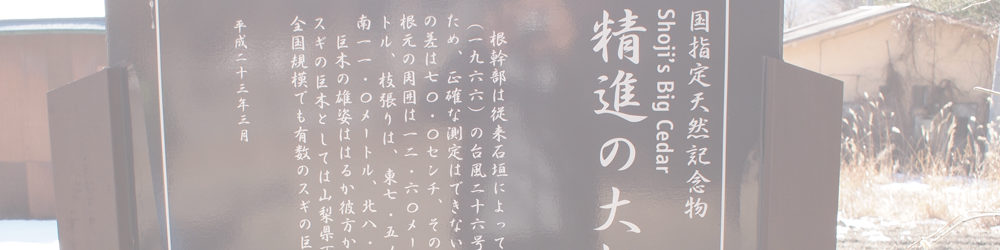 国指定天然記念物
Shoji's Big Cedar
精進の大
根幹部は従来石垣によって
(一九六六)の台風二十六号
ため、正確な測定はできない
の差は七〇・〇センチ、その
根元の周囲は一二・六〇メー
トル、枝張りは、東七・五
南一一・〇メートル、北八・
巨木の雄姿ははるか彼方か
スギの巨木としては山梨県
全国規模でも有数のスギの巨
平成二十三年三月